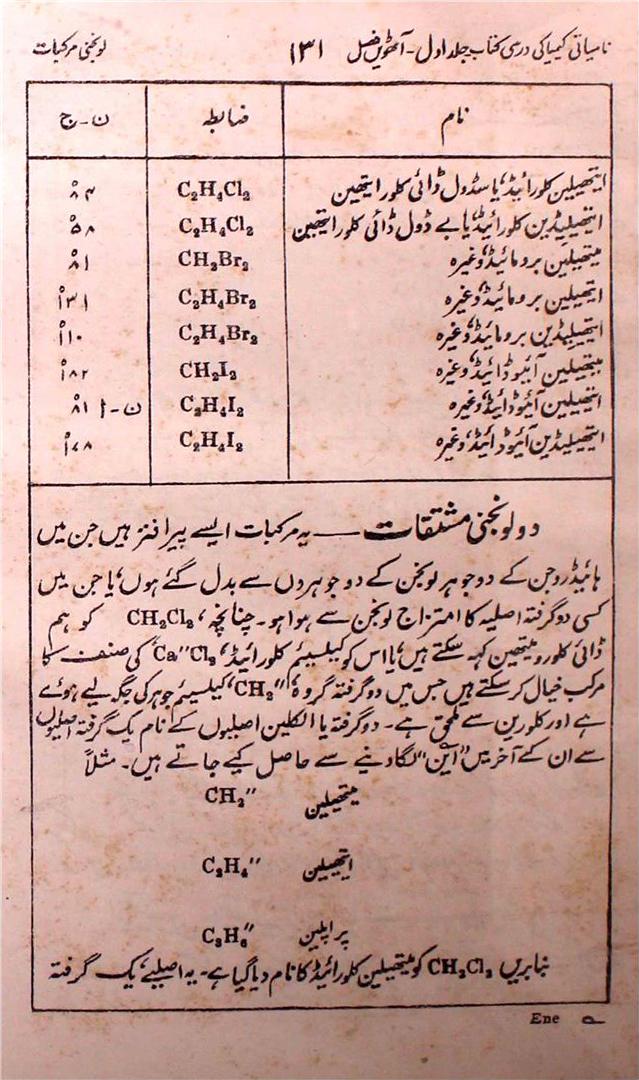 نامیاتی کیمیا کی درسی کتاب جلد اول - آٹھویں فصل ۱۳۱ لونجنی مرکبات
نام ضابطہ ن - ج
ایتھیلین کلورائیڈ، یا سڈول ڈائی کلورایتھین C₂H₄Cl₂ ۸۴°
ایتھیلیڈین کلورائیڈ، یا بے ڈول ڈائی کلورایتھین C₂H₄Cl₂ ۵۸°
میتھیلین برومائیڈ، وغیرہ CH₂Br₂ ۸۱°
ایتھیلین برومائیڈ، وغیرہ C₂H₄Br₂ ۱۳۱°
ایتھیلیڈین برومائیڈ، وغیرہ C₂H₄Br₂ ۱۱۰°
میتھیلین آئیوڈائیڈ، وغیرہ CH₂I₂ ۱۸۲°
ایتھیلین آئیوڈائیڈ، وغیرہ C₂H₄I₂ ن - ا ۸۱°
ایتھیلیڈین آئیوڈائیڈ، وغیرہ C₂H₄I₂ ۱۷۸°
دولونجنی مشتقات — یہ مرکبات ایسے پیرافنز ہیں جن میں
ہائیڈروجن کے دو جوہر لونجن کے دو جوہروں سے بدل گئے ہوں، یا جن میں
کسی دو گرفتہ اصلیہ کا امتزاج لونجن سے ہوا ہو۔ چنانچہ، CH₂Cl₂ کو ہم
ڈائی کلورو میتھین کہہ سکتے ہیں، یا اس کو کیلسیئم کلورائیڈ، Ca″Cl₂ کی صنف کا
مرکب خیال کر سکتے ہیں جس میں دو گرفتہ گروہ، CH₂″، کیلسیئم جوہر کی جگہ لیے ہوئے
ہے اور کلورین سے ملحق ہے۔ دو گرفتہ یا الکلین اصلیوں کے نام یک گرفتہ اصلیوں
سے ان کے آخر میں "این" لگا دینے سے حاصل کیے جاتے ہیں۔ مثلاً
میتھیلین CH₂″
ایتھیلین C₂H₄″
پراپلین C₃H₆″
بنابریں CH₂Cl₂ کو میتھیلین کلورائیڈ کا نام دیا گیا ہے۔ یہ اصلیے، یک گرفتہ
Ene ؎